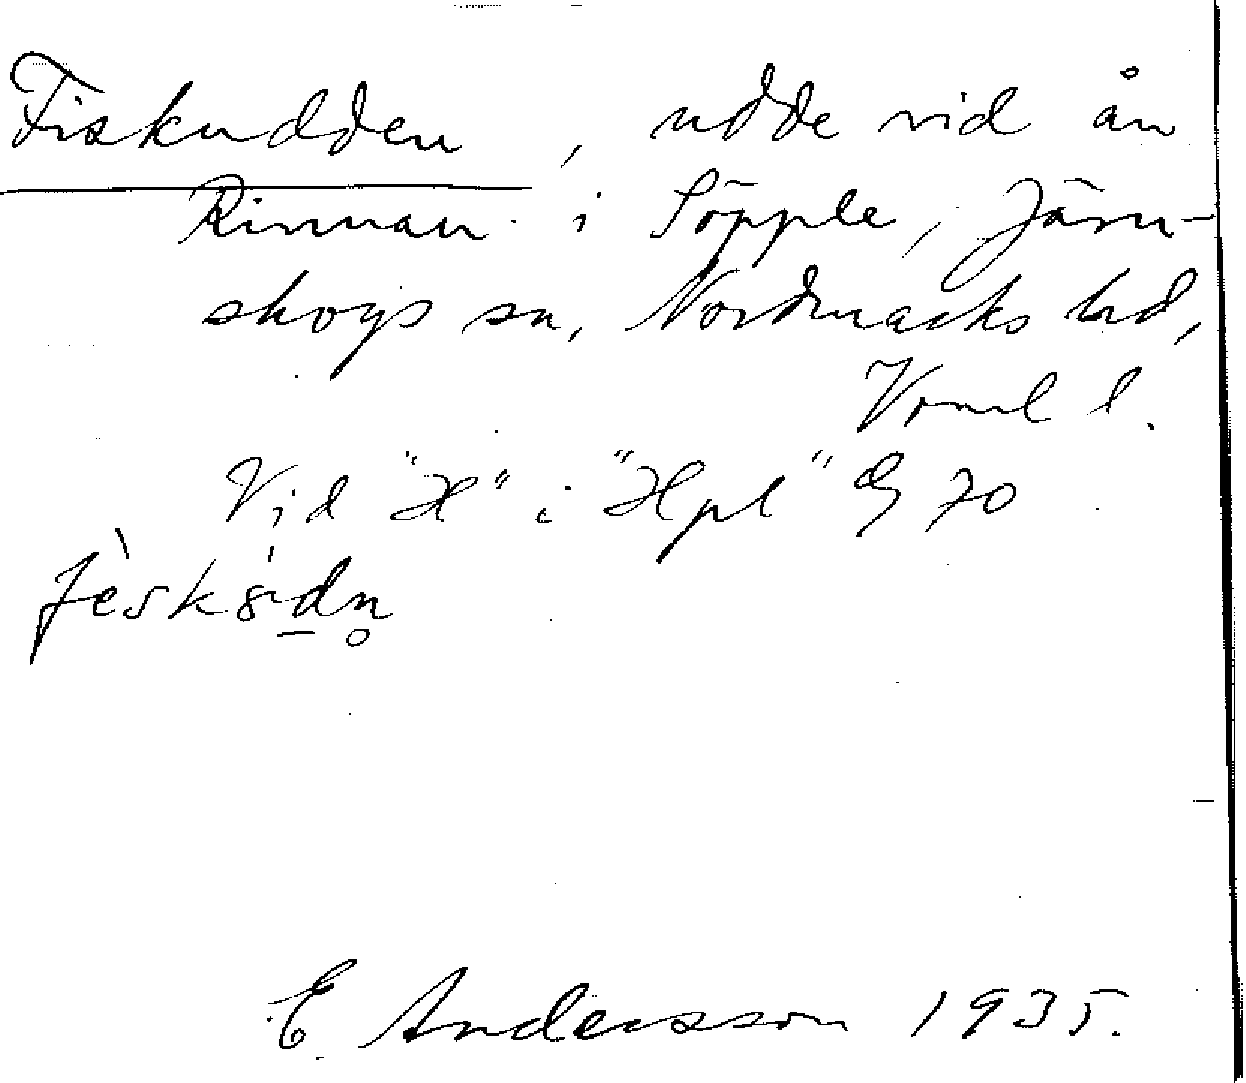 Fiskudden, udde vid ån
Rinnan i Söpple, Järn-
skogs sn, Nordmarks hd,
Vrml l.
Vid "H" i "Hpl" G 70
E. Andersson 1935.